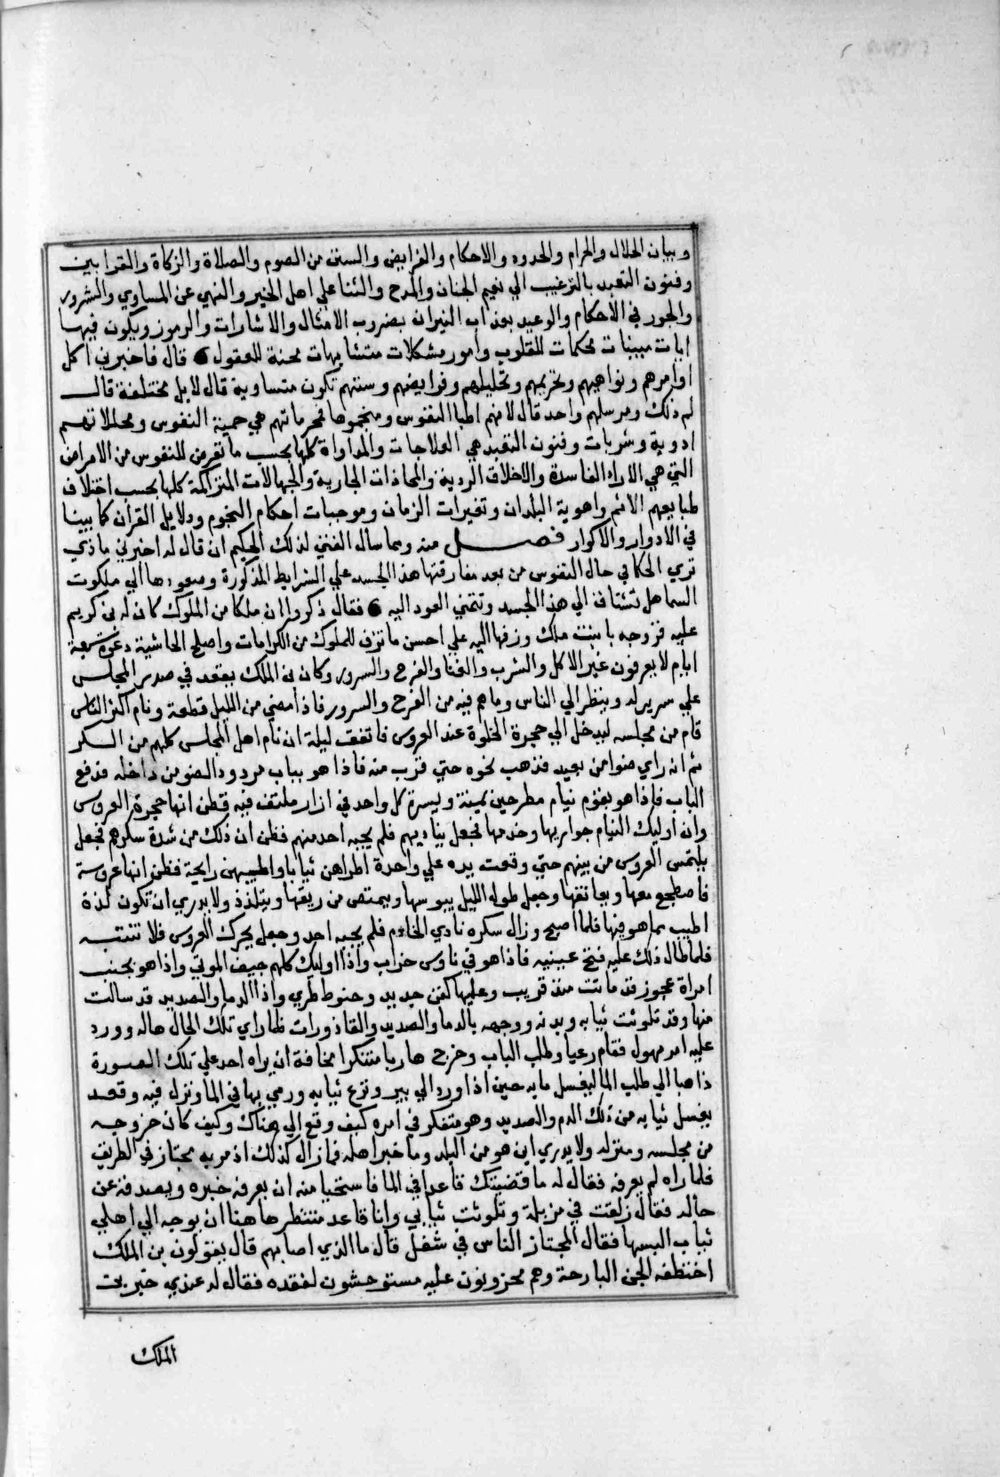 وبيان الحلال والحرام والحدود والاحكام والفرايض والسنن من الصوم والصلاة والزكاة والقرابين
وفنون التعبد بالترغيب الي نعيم الجنان والمدح والثنا علي اهل الخير والنهي عن المساوي والشرور
والجور في الاحكام والوعيد بعذاب النيران بضروب الامثال والاشارات والرموز ويكون فيها
ايات مبينات محكمات للقلوب وامور مشكلات متشابهات محنة للعقول قال فاخبرني اكل
اوامرهم ونواهيهم وتحريمهم وتحليلهم وفرايضهم وسنتهم تكون متساوية قال لا بل مختلفة قال
لم ذلك ومرسلهم واحد قال لانهم اطبا النفوس ومنجموها فمحرماتهم هي حمية النفوس ومحللاتهم
ادوية وشربات وفنون التعبد هي العلاجات والمداواة كلها بحسب ما تعرض للنفوس من الامراض
التي هي الاراء الفاسدة والاخلاق الردية والعادات الجارية والجهالات المتراكمة كلها بحسب اختلاف
طبايعهم الامم واهوية البلدان وتغيرات الزمان وموجبات احكام النجوم ودلايل القران كما بينا
في الادوار والاكوار فصل منه ومما سال الفتي لذلك الحكيم ان قال له اخبرني ماذي
تري الحكا في حال النفوس من بعد مفارقتها هذا الجسد علي الشرايط المذكورة وصعودها الي ملكوت
السما هل تشتاق الي هذا الجسد وتتمني العود اليه فقال ذكروا ان ملكا من الملوك كان له بن كريم
عليه فزوجه بابنت ملك وزفها اليه علي احسن ما تزف للملوك من الكرامات واصلح الحاشية دعوة سبعة
ايام لا يعرفون غير الاكل والشرب والغنا والفرح والسرور وكان بن الملك يقعد في صدر المجلس
علي سرير له وينظر الي الناس وما هم فيه من الفرح والسرور فاذا مضي من الليل قطعة ونام اكثر الناس
قام من مجلسه ليدخل الي حجرة الخلوة عند العروس فاتفق ليلة ان نام اهل المجلس كلهم من السكر
ثم انه راي ضوا من بعيد فذهب نحوه حتي قرب منه فاذا هو بباب مردود الضو من داخله فدفع
الباب فاذا هو بقوم نيام مطرحين يمنة ويسرة كل واحد في ازار ملتف فيه فظن انها حجرة العروس
وان اوليك النيام جواريها وخدمها فجعل يناديهم فلم يجبه احد منهم فظن ان ذلك من شدة سكرهم فجعل
يلتمس العروس من بينهم حتي وقعت يده علي واحدة اطراهن ثيابا واطيبهن رايحة فظن انها عروسة
فاضطجع معها وبعانقها وجعل طول الليل يبوسها ويمتص من ريقها ويتلذذ ولا يدري ان تكون لذة
اطيب مما هو فيها فلما اصبح وزال سكره نادي الخادم فلم يجبه احد وجعل يحرك العروس فلا تنتبه
فلما طال ذلك عليه فتح عينيه فاذا هو في ناوس خراب واذا اوليك كلهم جيف الموتي واذا هو بجنب
امراة عجوز قد ماتت منذ قريب وعليها كفن جديد وحنوط طري واذا الدما والصديد قد سالت
منها وقد تلوثت ثيابه وبدنه ووجهه بالدما والصديد والقاذورات فلما راي تلك الحال هاله وورد
عليه امر مهول فقام رعبا وطلب الباب وخرج هاربا متنكرا مخافة ان يراه احد علي تلك الصورة
ذاهبا الي طلب الما ليغسل ما به حين اذا ورد الي بير ونزع ثيابه ورمي بها في الما ونزل فيه وقعد
يغسل ثيابه من ذلك الدم والصديد وهو متفكر في امره كيف وقع الي هناك وكيف كان خروجه
من مجلسه ومنزله ولا يدري اين هو من البلد وما خبر اهله فما زال كذلك اذ مر به مجتاز في الطريق
فلما راه لم يعرفه فقال له ما قضيتك قاعدا في الما فاستحيا منه ان يعرفه خبره ويصدقه عن
حاله فقال زلقت في مزبلة وتلوثت ثيابي وانا قاعد منتظر هاهنا ان يوجه الي اهلي
ثياب البسها فقال المجتاز الناس في شغل قال ما الذي اصابهم قال يقولون بن الملك
اختطفه الجن البارحة وهم محزونون عليه مستوحشون لفقده فقال له عندي خبر بن
الملك